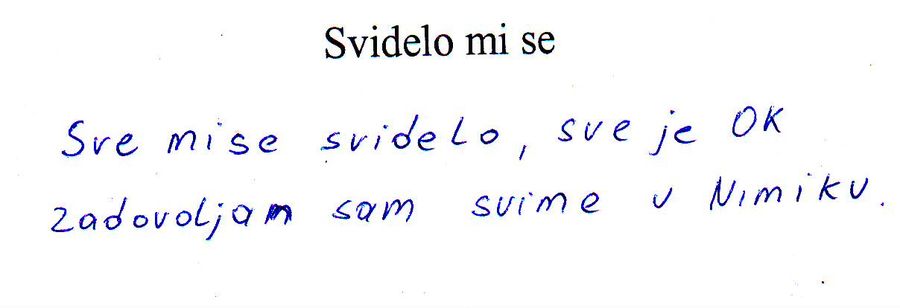 Svidelo mi se
Sve mise svidelo, sve je OK
zadovoljan sam svime u Nimiku.